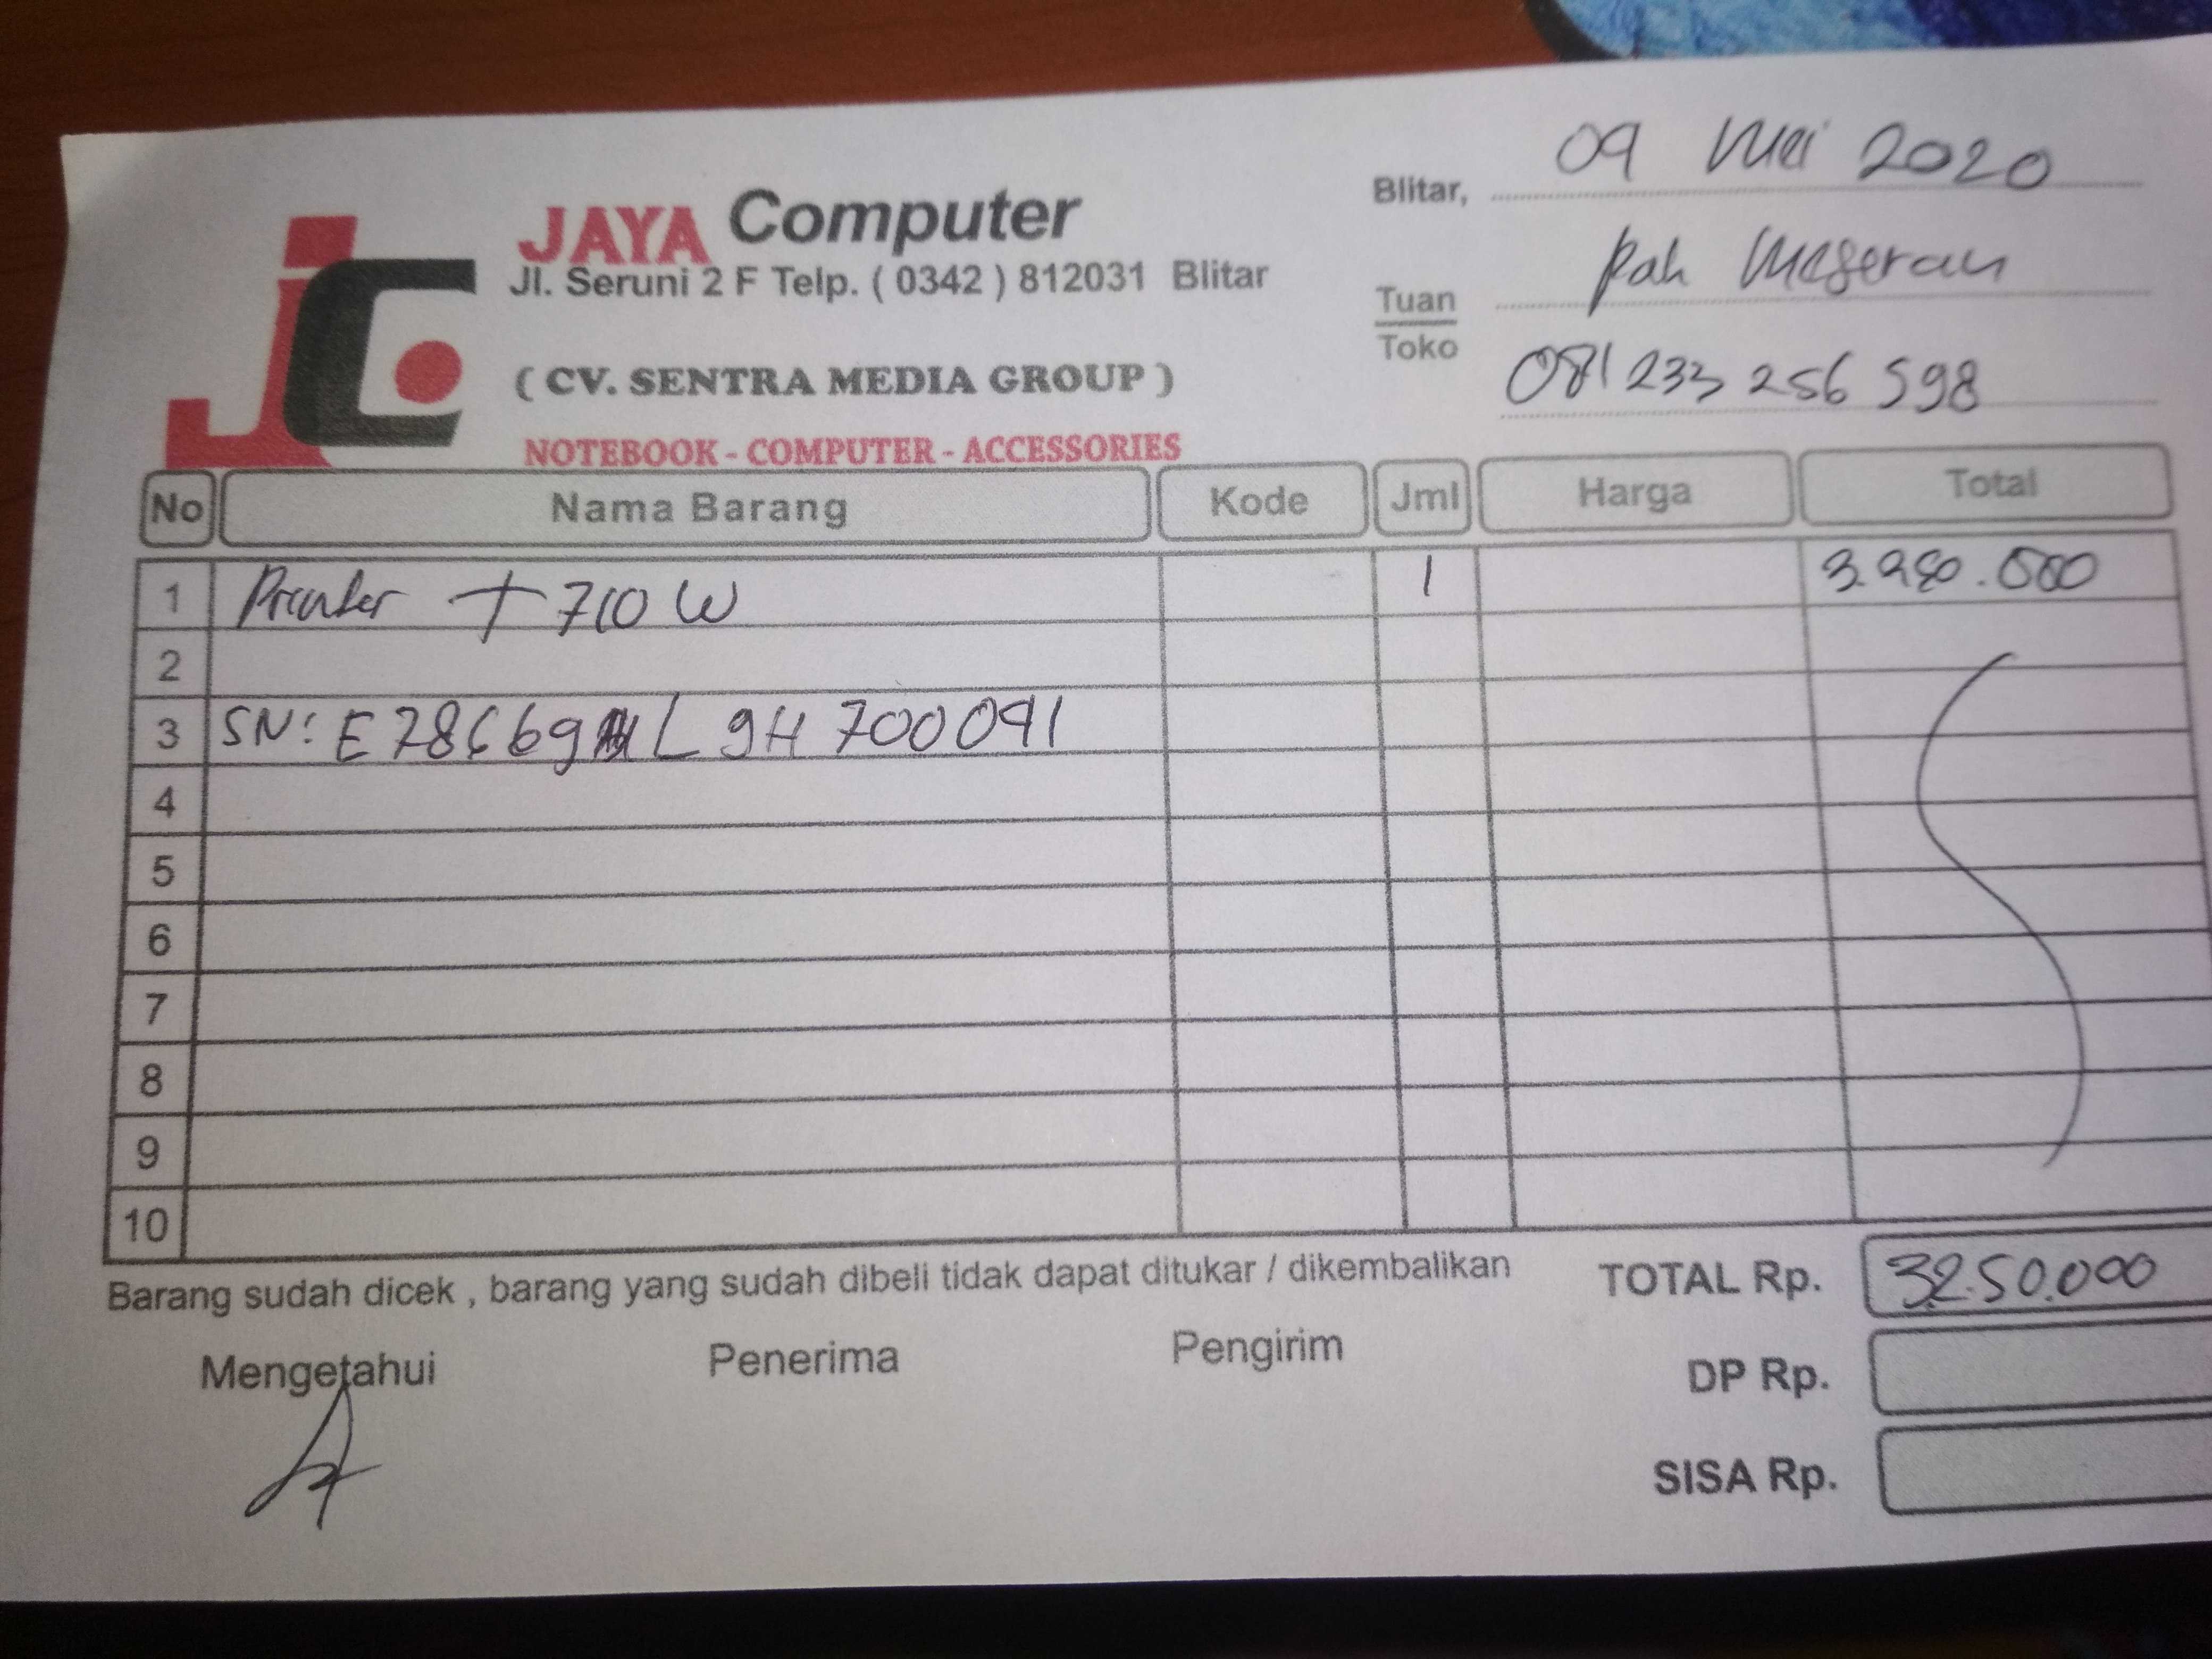 JAYA Computer
Jl. Seruni 2 F Telp. ( 0342 ) 812031 Blitar
( CV. SENTRA MEDIA GROUP )
NOTEBOOK - COMPUTER - ACCESSORIES
Blitar, 09 Mei 2020
Tuan Pak
Toko 081 233 256 598
No Nama Barang Kode Jml Harga Total
1 Printer T 710 W 1 3.250.000
2
3 SN: E78669 L 9H 700091
4
5
6
7
8
9
10
Barang sudah dicek , barang yang sudah dibeli tidak dapat ditukar / dikembalikan
TOTAL Rp. 3.250.000
Mengetahui Penerima Pengirim
DP Rp.
SISA Rp.